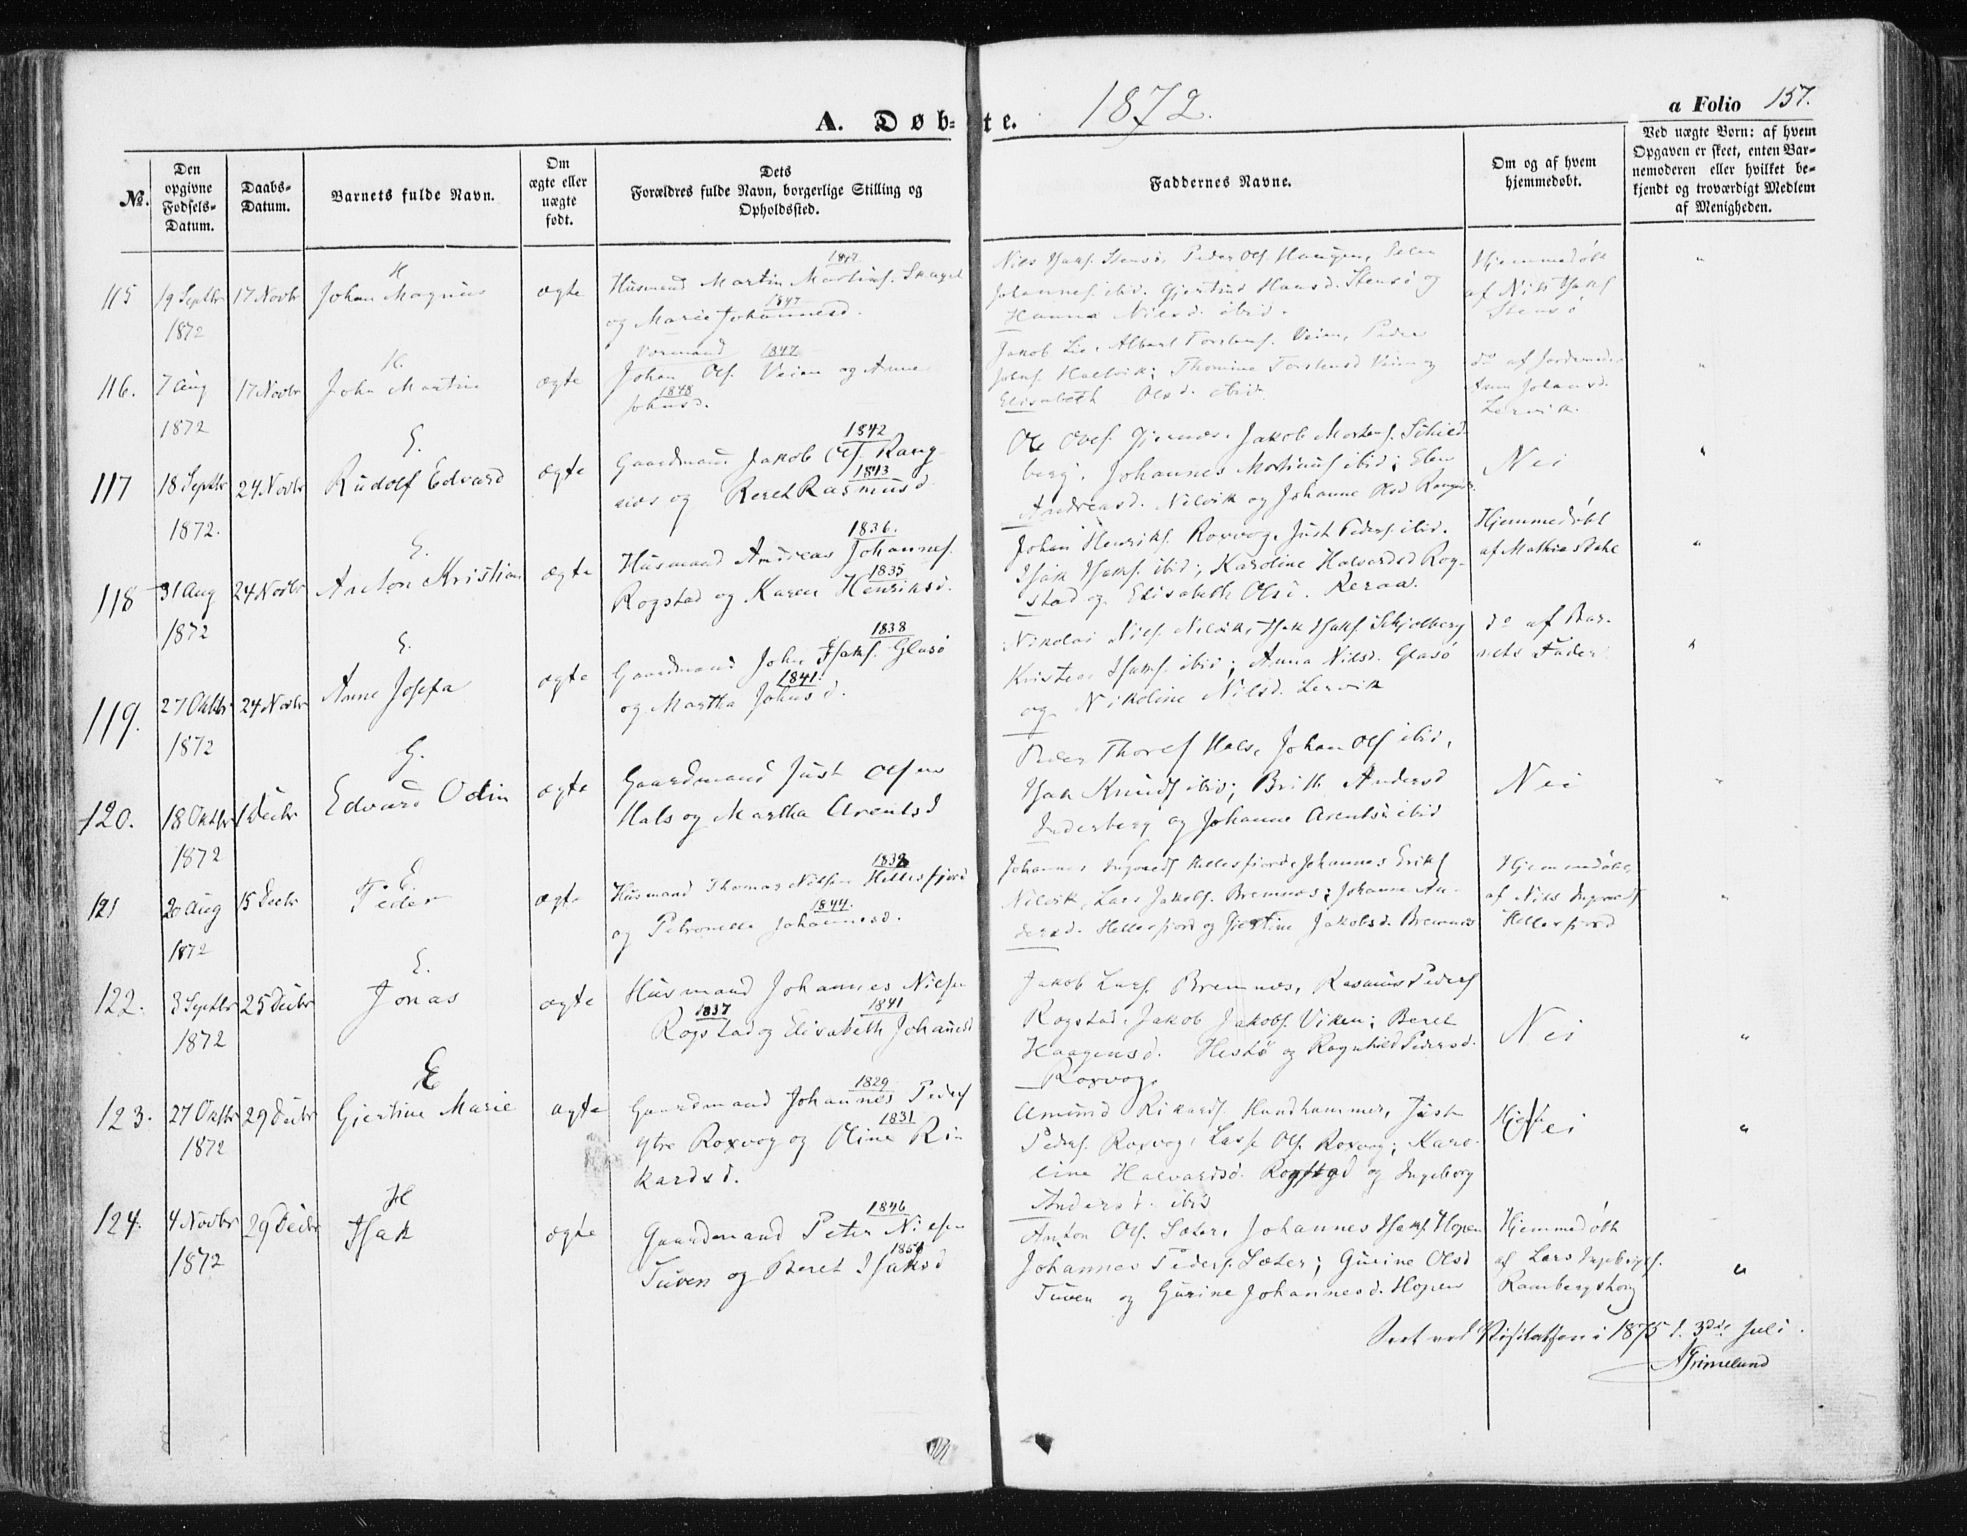 A. Døb-te. 1872.
a Folio 157.
No.
Den opgivne Fødsels-Datum.
Daabs-Datum.
Barnets fulde Navn.
Om ægte eller uægte født.
Dets Forældres fulde Navn, borgerlige Stilling og Opholdssted.
Faddernes Navne.
Om og af hvem hjemmedøbt.
Ved uægte Børn: af hvem Opgaven er skeet, enten Barnemoderen eller hvilket bekjendt og troværdigt Medlem af Menigheden.
115 19 Septbr 1872 17 Novbr H Johan Magnus ægte
Husmand Martin Martinus.
og Marie Johannesd. 1847
Nils Isaks. Stensø, Peder Ols. Haugen,
Johannes. ibid. Gjertrud Hansd. Stensø og
Hanna Nilsd. ibid.
Hjemmedøbt
af Nils Isaks
Stensø
"
116. 7 Aug 1872 17 Novbr H. John Martin ægte
1847
Johan Ols. Veien og Anne
1848
Johnsd.
Jakob Lie, Albert Torstens. Veien, Peder
Johns. Halsvik; Thomine Torstensd Veien og
Elisabeth Olsd. ibid.
do af Jordemoder
Johansd.
Lervik.
"
117 18 Septbr 1872. 24 Novbr E. Rudolf Edvard ægte
1842
Gaardmand Jakob Ols. Rang-
1843
næs og Beret Rasmusd
Ole Ols. Gjernæs, Jakob Mortens.
berg, Johannes Martinus ibid; Elen
Andreasd. Nilvik og Johanne Olsd Rangnæs.
Nei
"
118 31 Aug 1872 24 Novbr E. Anton Kristian ægte
1836.
Husmand Andreas Johannes.
1835
Rogstad og Karen Henriksd.
Johan Henriks. Roxvog, Just Peders. ibid.
Isak Isaks. ibid; Karoline Halvardsd Rog-
stad og Elisabeth Olsd. Reraa.
Hjemmedøbt
af Mathias Dahl
"
119. 27 Oktbr 1872 24 Novbr E. Anne Josefa ægte
1838
Gaardmand John Isaks. Glasø
1841
og Martha Johnsd.
Nikolai Nils. Nilvik, Isak Isaks. Skjølberg
Kristen Isaks. ibid; Anna Nilsd. Glasø
og Nikoline Nilsd. Lervik
do af Bar-
nets Fader
"
120. 18 Oktbr 1872 1 Decbr G. Edvard Odin ægte
Gaardmand Just Olsen
Hals og Martha Arentsd
Peder Thores Hals, Johan Ols ibid,
Isak Knuds ibid; Brith Andersd
Inderberg og Johanne Arentsd ibid
Nei
"
121 20 Aug 1872 15 Decbr E Peder ægte
1838
Husmand Thomas Nilsen Hellesfjord
1844.
og Petronelle Johannesd.
Johannes Hellesfjord, Johannes Eriks
Nilvik, Lars Jakobs. Bremnæs; Johanne An-
dersd. Hellesfjord og Gjertine Jakobsd. Bremnæs
Hjemmedøbt
af Nils
Hellesfjord
"
122. 3 Septbr 1872 25 Decbr E. Jonas ægte
Husmand Johannes Nilsen
1837 1841
Rogstad og Elisabeth Johansd
Jakob Lars. Bremnæs, Rasmus Peders
Rogstad, Jakob Jakobs. Viken; Beret
Haagensd. Hestø og Ragnhild Pedersd.
Roxvog.
Nei
"
123. 27 Oktbr 1872 29 Decbr E Gjertine Marie ægte
1829
Gaardmand Johannes Peders
1831
Ytre Roxvog og Oline Ri-
kardsd.
Amund Rikards. Hundhammer, Just
Peders. Roxvog, Lasse Ols. Roxvog; Karo-
line Halvardsd. Rogstad og Ingeborg
Andersd. ibid
Nei
"
124. 4 Novbr 1872 29 Decbr H Isak ægte
1846
Gaardmand Peter Nilsen
1851
Tuven og Beret Isaksd
Anton Ols. Sæter, Johannes Isaks. Hopen
Johannes Peders. Sæter; Gurine Olsd
Tuven og Gurine Johannesd. Hopen
Hjemmedøbt
af Lars Ingebrigts.
Rambergshoug
"
Seet ved Visitatsen i 1875 d. 3die Juli.
Grimelund